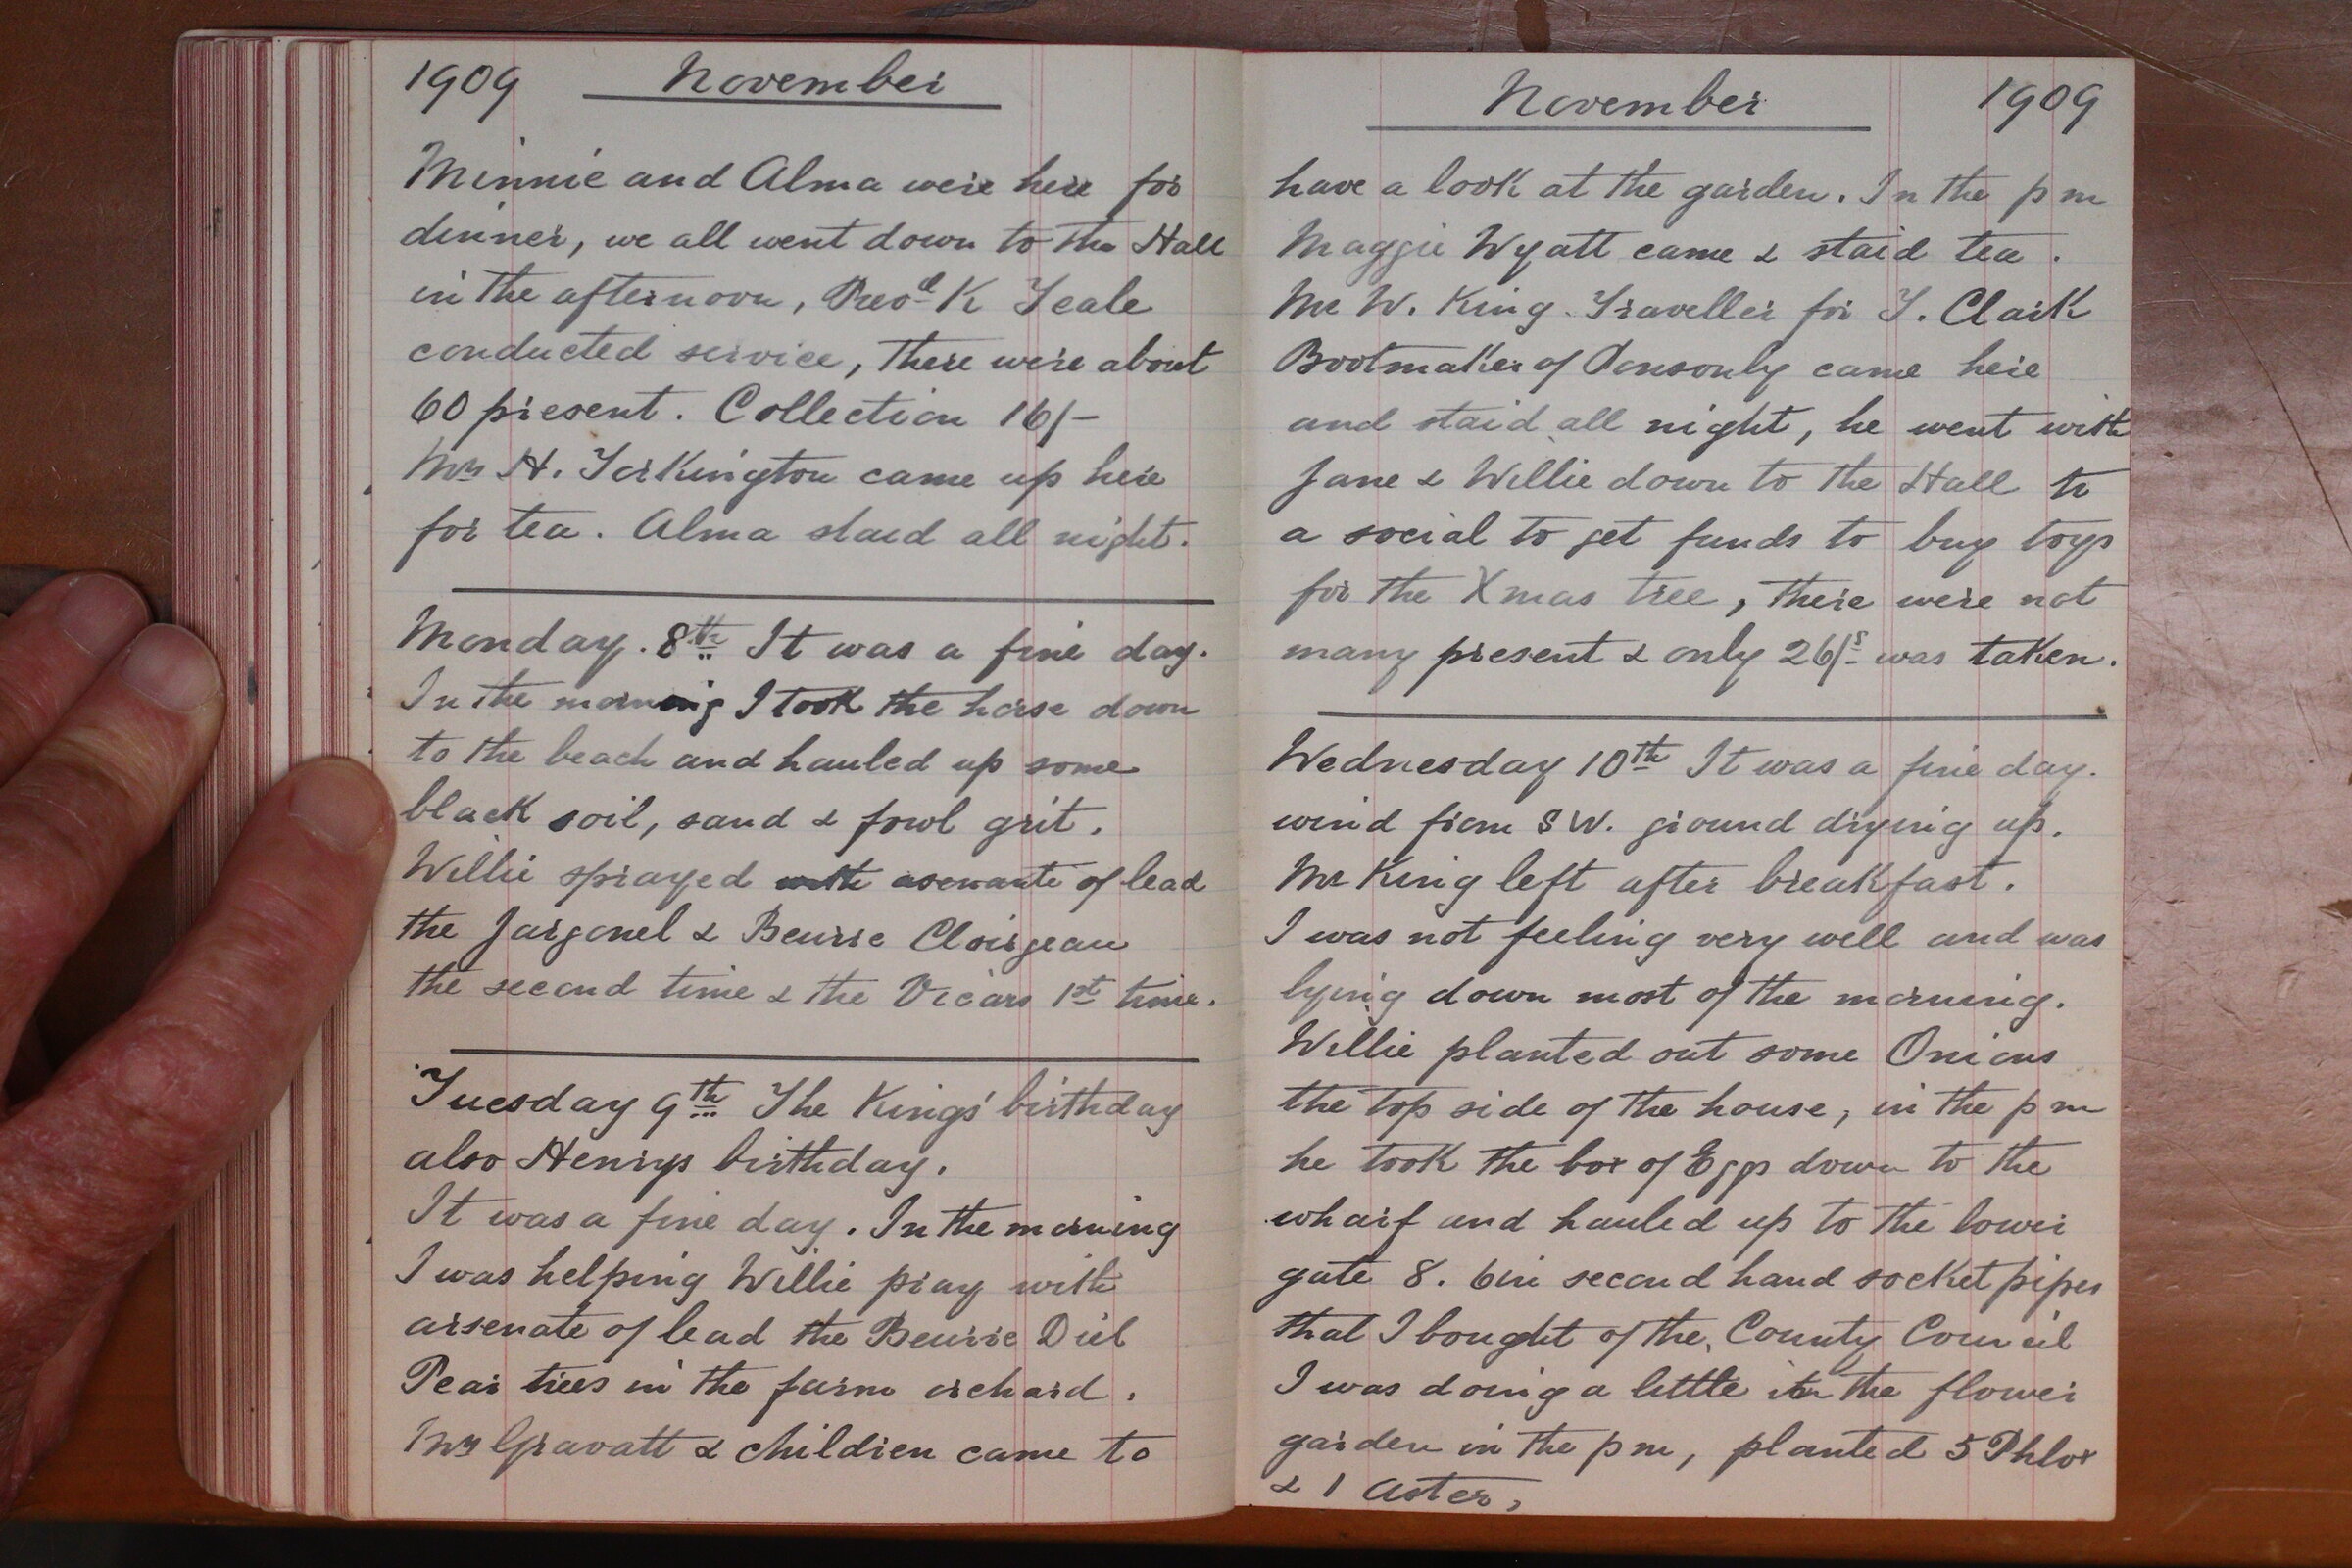 1909 November
Minnie and Alma were here for
dinner, we all went down to the Hall
in the afternoon, Revd K Teale
conducted service, there were about
60 present. Collection 16/-
Mrs H. Torkington came up here
for tea. Alma staid all night.
Monday. 8th It was a fine day.
In the morning I took the horse down
to the beach and hauled up some
black soil, sand & fowl grit.
Willie sprayed with asenate of lead
the Jargonel & Beurre Clairgeau
the second time & the Vicars 1st time.
Tuesday 9th The Kings' birthday
also Henrys birthday.
It was a fine day. In the morning
I was helping Willie pray with
arsenate of lead the Beurre Diel
Pear trees in the farm orchard.
Mrs Gravatt & children came to
November 1909
have a look at the garden. In the p m
Maggie Wyatt came & staid tea.
Mr W. King. Traveller for T. Clark
Bootmaker of Ponsonby came here
and staid all night, he went with
Jane & Willie down to the Hall to
a social to get funds to buy toys
for the Xmas tree, there were not
many present & only 26/s was taken.
Wednesday 10th It was a fine day.
wind from S W. ground drying up.
Mr King left after breakfast.
I was not feeling very well and was
lying down most of the morning.
Willie planted out some Onions
the top side of the house, in the p m
he took the box of Eggs down to the
wharf and hauled up to the lower
gate 8. 6in second hand socket pipes
that I bought of the County Council
I was doing a little in the flower
garden in the p m, planted 5 Phlox
& 1 Aster,